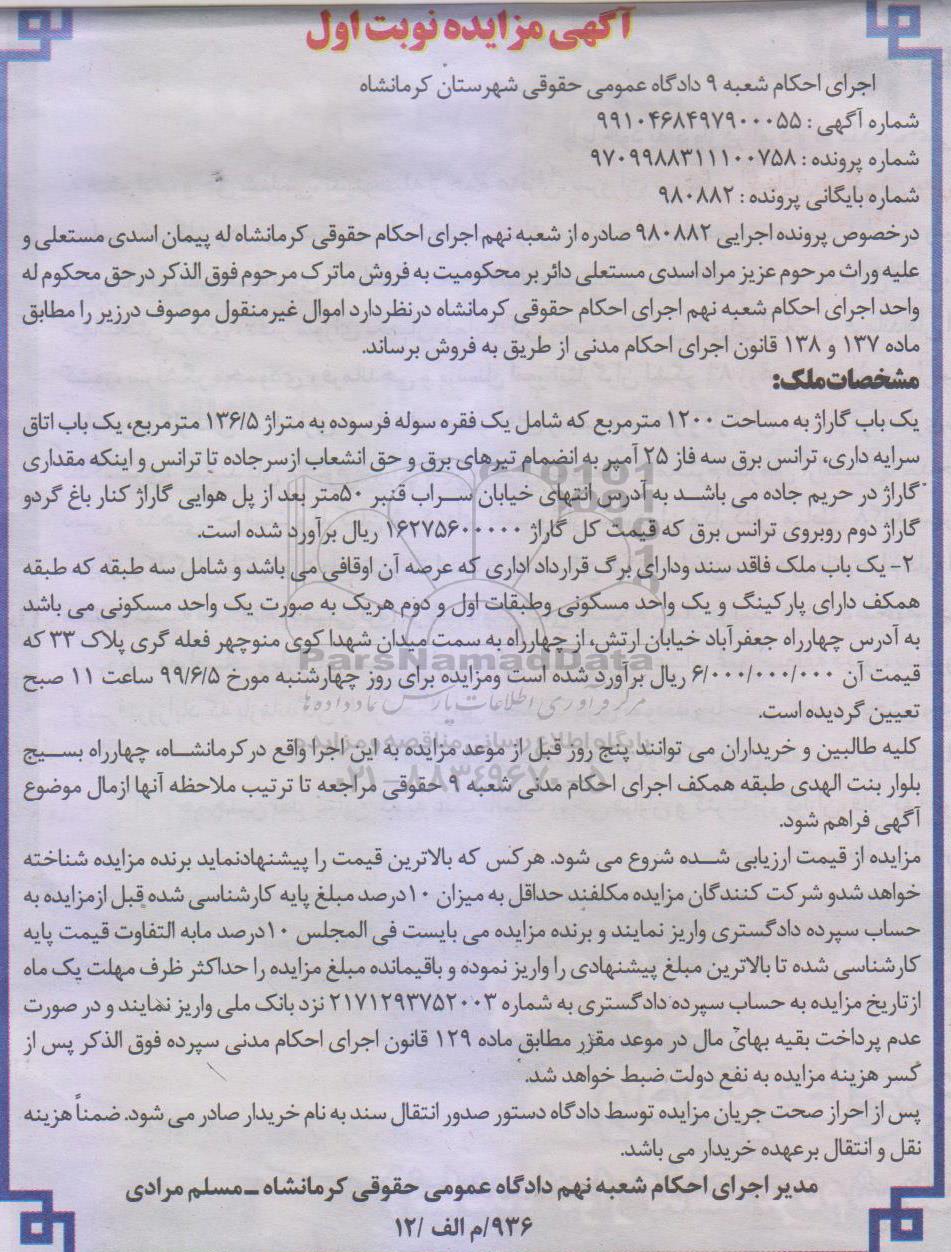 آگهی مزایده نوبت اول
اجرای احکام شعبه ۹ دادگاه عمومی حقوقی شهرستان کرمانشاه
شماره آگهی : ۹۹۱۰۴۶۸۴۹۷۹۰۰۰۵۵
شماره پرونده : ۹۷۰۹۹۸۸۳۱۱۱۰۰۷۵۸
شماره بایگانی پرونده : ۹۸۰۸۸۲
درخصوص پرونده اجرایی ۹۸۰۸۸۲ صادره از شعبه نهم اجرای احکام حقوقی کرمانشاه له پیمان اسدی مستعلی و
علیه وراث مرحوم عزیز مراد اسدی مستعلی دائر بر محکومیت به فروش ماترک مرحوم فوق الذکر درحق محکوم له
واحد اجرای احکام شعبه نهم اجرای احکام حقوقی کرمانشاه درنظردارد اموال غیرمنقول موصوف درزیر را مطابق
ماده ۱۳۷ و ۱۳۸ قانون اجرای احکام مدنی از طریق به فروش برساند.
مشخصات ملک:
یک باب گاراژ به مساحت ۱۲۰۰ مترمربع که شامل یک فقره سوله فرسوده به متراژ ۱۳۶/۵ مترمربع، یک باب اتاق
سرایه داری، ترانس برق سه فاز ۲۵ آمپر به انضمام تیرهای برق و حق انشعاب ازسرجاده تا ترانس و اینکه مقداری
گاراژ در حریم جاده می باشد به آدرس انتهای خیابان سراب قنبر ۵۰متر بعد از پل هوایی گاراژ کنار باغ گردو
گاراژ دوم روبروی ترانس برق که قیمت کل گاراژ ۱۶۲۷۵۶۰۰۰۰۰ ریال برآورد شده است.
۲- یک باب ملک فاقد سند ودارای برگ قرارداد اداری که عرصه آن اوقافی می باشد و شامل سه طبقه که طبقه
همکف دارای پارکینگ و یک واحد مسکونی وطبقات اول و دوم هریک به صورت یک واحد مسکونی می باشد
به آدرس چهارراه جعفرآباد خیابان ارتش، از چهارراه به سمت میدان شهدا کوی منوچهر فعله گری پلاک ۳۳ که
قیمت آن ۶/۰۰۰/۰۰۰/۰۰۰ ریال برآورد شده است ومزایده برای روز چهارشنبه مورخ ۹۹/۶/۵ ساعت ۱۱ صبح
تعیین گردیده است.
کلیه طالبین و خریداران می توانند پنج روز قبل از موعد مزایده به این اجرا واقع درکرمانشاه، چهارراه بسیج
بلوار بنت الهدی طبقه همکف اجرای احکام مدنی شعبه ۹ حقوقی مراجعه تا ترتیب ملاحظه آنها ازمال موضوع
آگهی فراهم شود.
مزایده از قیمت ارزیابی شده شروع می شود. هرکس که بالاترین قیمت را پیشنهادنماید برنده مزایده شناخته
خواهد شدو شرکت کنندگان مزایده مکلفند حداقل به میزان ۱۰درصد مبلغ پایه کارشناسی شده قبل ازمزایده به
حساب سپرده دادگستری واریز نمایند و برنده مزایده می بایست فی المجلس ۱۰درصد مابه التفاوت قیمت پایه
کارشناسی شده تا بالاترین مبلغ پیشنهادی را واریز نموده و باقیمانده مبلغ مزایده را حداکثر ظرف مهلت یک ماه
ازتاریخ مزایده به حساب سپرده دادگستری به شماره ۲۱۷۱۲۹۳۷۵۲۰۰۳ نزد بانک ملی واریز نمایند و در صورت
عدم پرداخت بقیه بهای مال در موعد مقرر مطابق ماده ۱۲۹ قانون اجرای احکام مدنی سپرده فوق الذکر پس از
کسر هزینه مزایده به نفع دولت ضبط خواهد شد.
پس از احراز صحت جریان مزایده توسط دادگاه دستور صدور انتقال سند به نام خریدار صادر می شود. ضمناً هزینه
نقل و انتقال برعهده خریدار می باشد.
مدیر اجرای احکام شعبه نهم دادگاه عمومی حقوقی کرمانشاه ـ مسلم مرادی
۹۳۶/م الف /۱۲
ParsNamadData